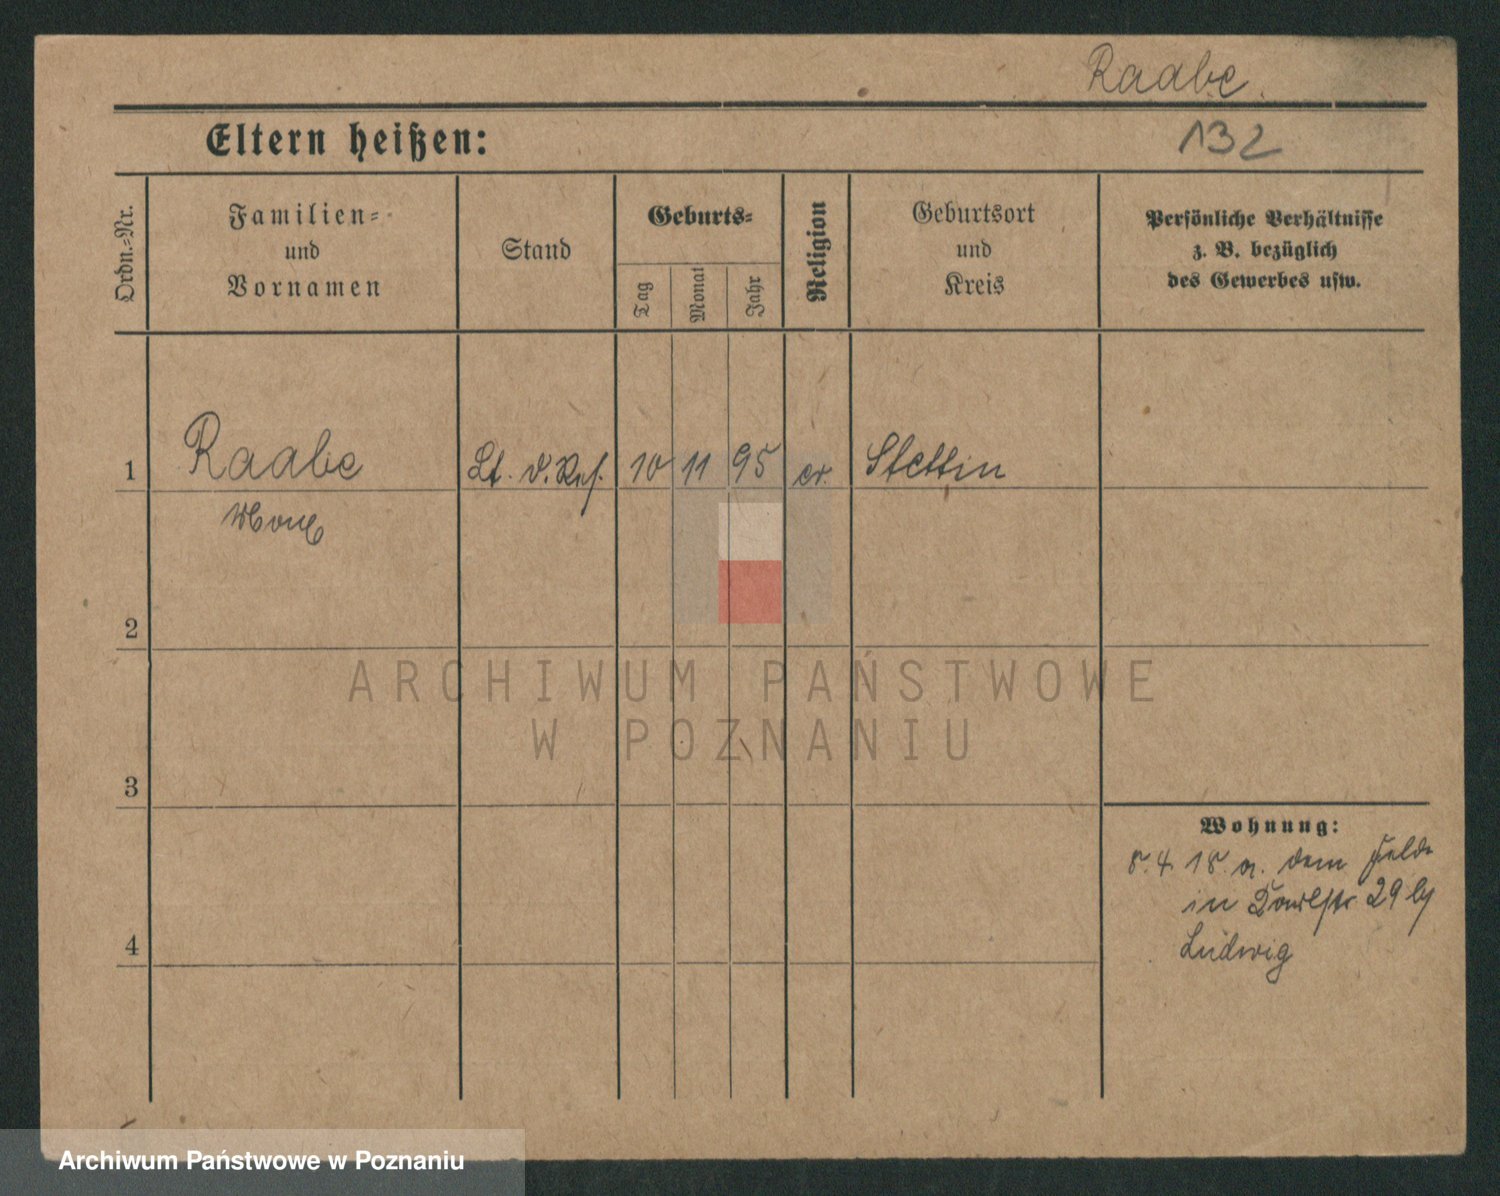 Raabe.
132
Eltern heißen:
Ordn.=Nr.
Familien=
und
Vornamen
Stand
Geburts=
Tag
Monat
Jahr
Religion
Geburtsort
und
Kreis
Persönliche Verhältnisse
z. B. bezüglich
des Gewerbes usw.
1 Raabe Lt. d. Res. 10 11 95 ev. Stettin
2
ARCHIWUM PAŃSTWOWE
W POZNANIU
3
Wohnung:
8. 4. 18. a. dem Felde
in 29 by
Ludwig
4
Archiwum Państwowe w Poznaniu